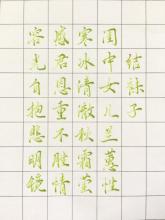 结袜子
闺中女儿兰蕙性
寒冰清澈秋霜莹
感君恩重不胜情
容光自抱悲明镜